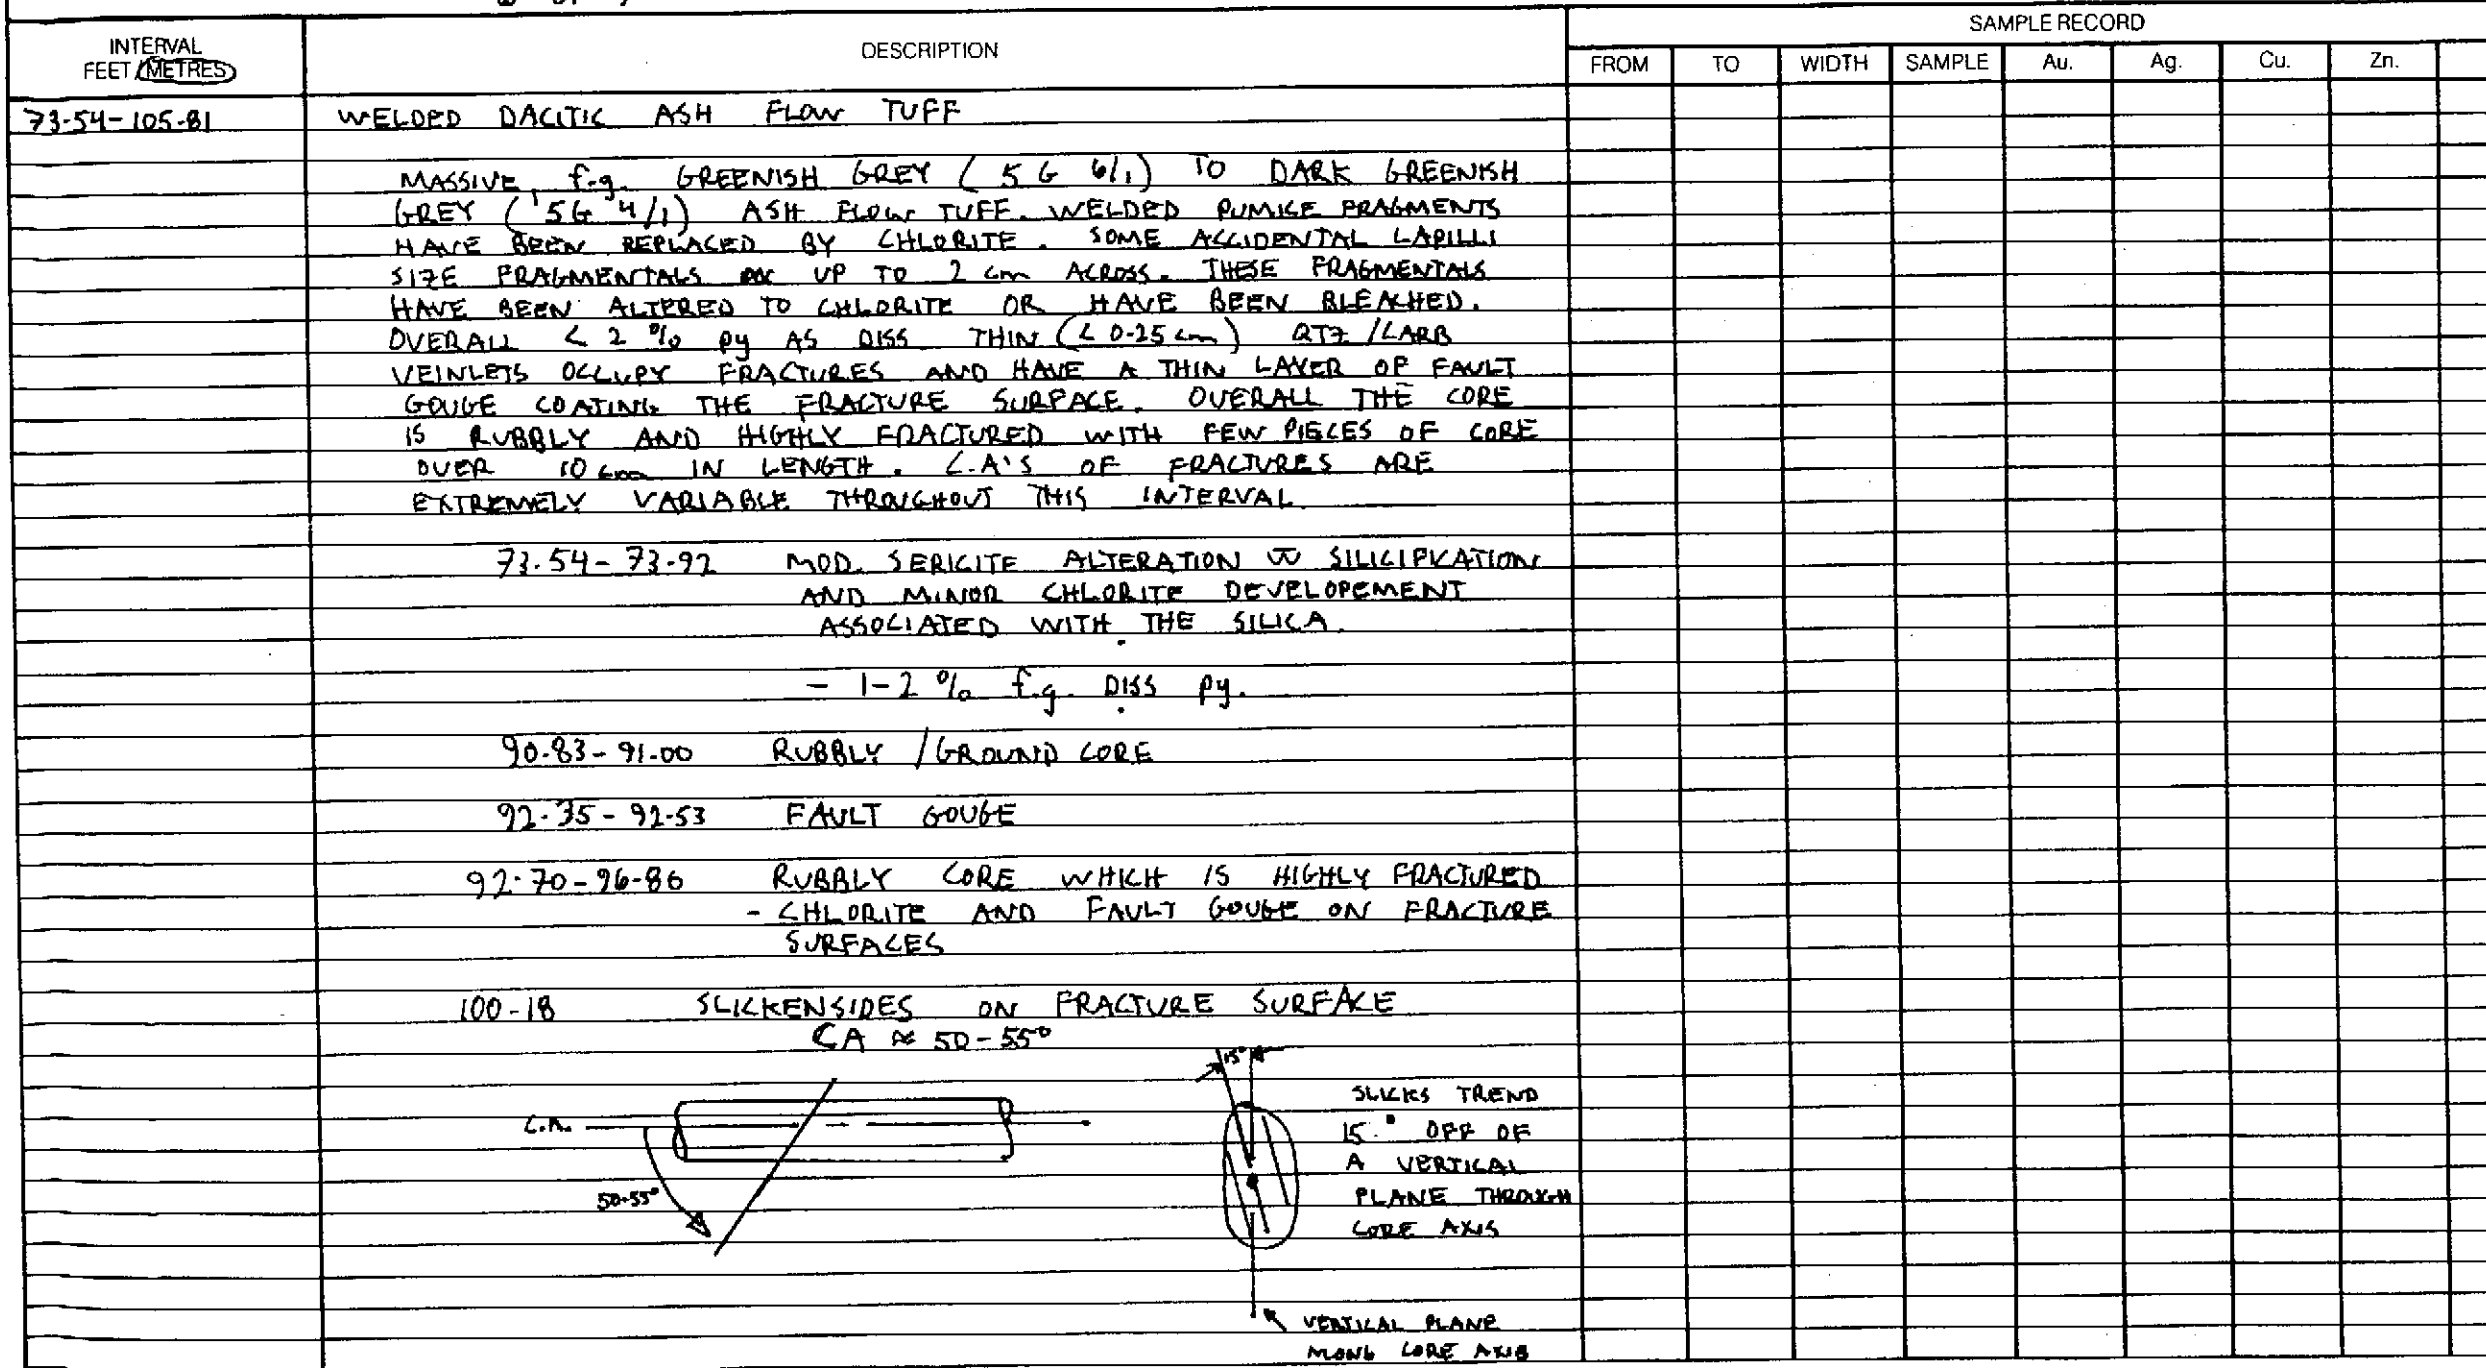 SAMPLE RECORD
INTERVAL
FEET / METRES
DESCRIPTION
FROM TO WIDTH SAMPLE Au. Ag. Cu. Zn.
73.54-105.81 WELDED DACITIC ASH FLOW TUFF
MASSIVE, f.g. GREENISH GREY (5 G 6/1) TO DARK GREENISH
GREY (5G 4/1) ASH FLOW TUFF. WELDED PUMICE FRAGMENTS
HAVE BEEN REPLACED BY CHLORITE. SOME ACCIDENTAL LAPILLI
SIZE FRAGMENTALS UP TO 2 cm ACROSS. THESE FRAGMENTALS
HAVE BEEN ALTERED TO CHLORITE OR HAVE BEEN BLEACHED.
OVERALL < 2 % py AS DISS THIN (< 0.25 cm) QTZ /CARB
VEINLETS OCCUPY FRACTURES AND HAVE A THIN LAYER OF FAULT
GOUGE COATING THE FRACTURE SURFACE. OVERALL THE CORE
IS RUBBLY AND HIGHLY FRACTURED WITH FEW PIECES OF CORE
OVER 10 cm IN LENGTH. C.A'S OF FRACTURES ARE
EXTREMELY VARIABLE THROUGHOUT THIS INTERVAL.
73.54-73.92 MOD. SERICITE ALTERATION W SILICIFICATION
AND MINOR CHLORITE DEVELOPEMENT
ASSOCIATED WITH THE SILICA.
- 1-2 % f.g. DISS py.
90.83-91.00 RUBBLY /GROUND CORE
92.35-92.53 FAULT GOUGE
92.70-96.86 RUBBLY CORE WHICH IS HIGHLY FRACTURED
- CHLORITE AND FAULT GOUGE ON FRACTURE
SURFACES
100.18 SLICKENSIDES ON FRACTURE SURFACE
CA ≈ 50-55°
15°
C.A.
50-55°
SLICKS TREND
15° OFF OF
A VERTICAL
PLANE THROUGH
CORE AXIS
VERTICAL PLANE
ALONG CORE AXIS